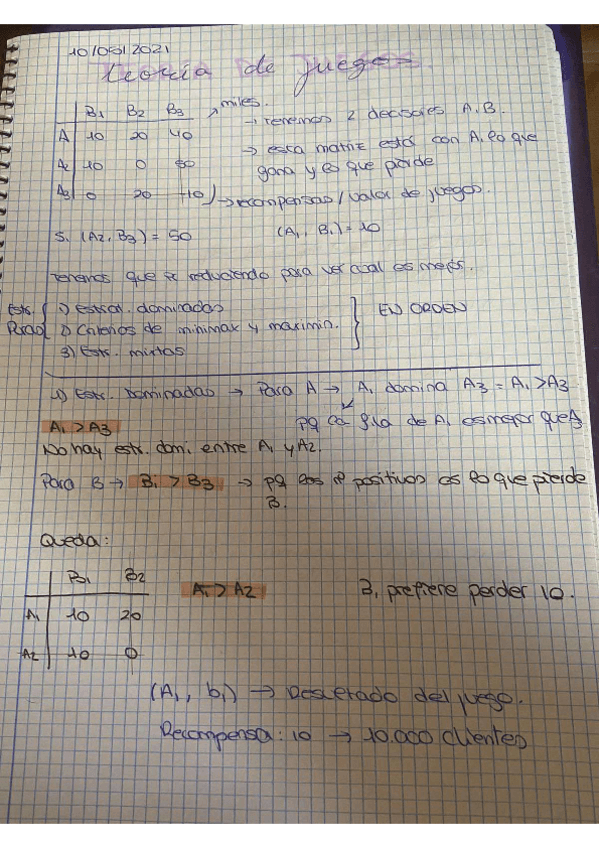 10/05/2021
Teoría de juegos
B1 B2 B3 miles.
A1 10 20 40
A2 10 0 50
A3 0 20 -10
→ Tenemos 2 decisores A, B.
→ esta matriz está con A, lo que
gana y lo que pierde
→ recompensas / valor de juegos.
Si (A2, B3) = 50 (A1, B1) = 10
Tenemos que ir reduciendo para ver cual es mejor.
Estr. Puras
1) estrat. dominadas
2) Criterios de minimax y maximin.
3) Estr. mixtas
EN ORDEN
1) Estr. Dominadas → Para A → A1 domina A3 = A1 > A3
pq la fila de A1 es mejor que A3
A1 > A3
No hay estr. domi. entre A1 y A2.
Para B → B1 > B3 → pq los nº positivos es lo que pierde
B.
Queda:
B1 B2
A1 10 20
A2 10 0
A1 > A2
B, prefiere perder 10.
(A1, b1) → Resultado del juego.
Recompensa: 10 → 10.000 clientes